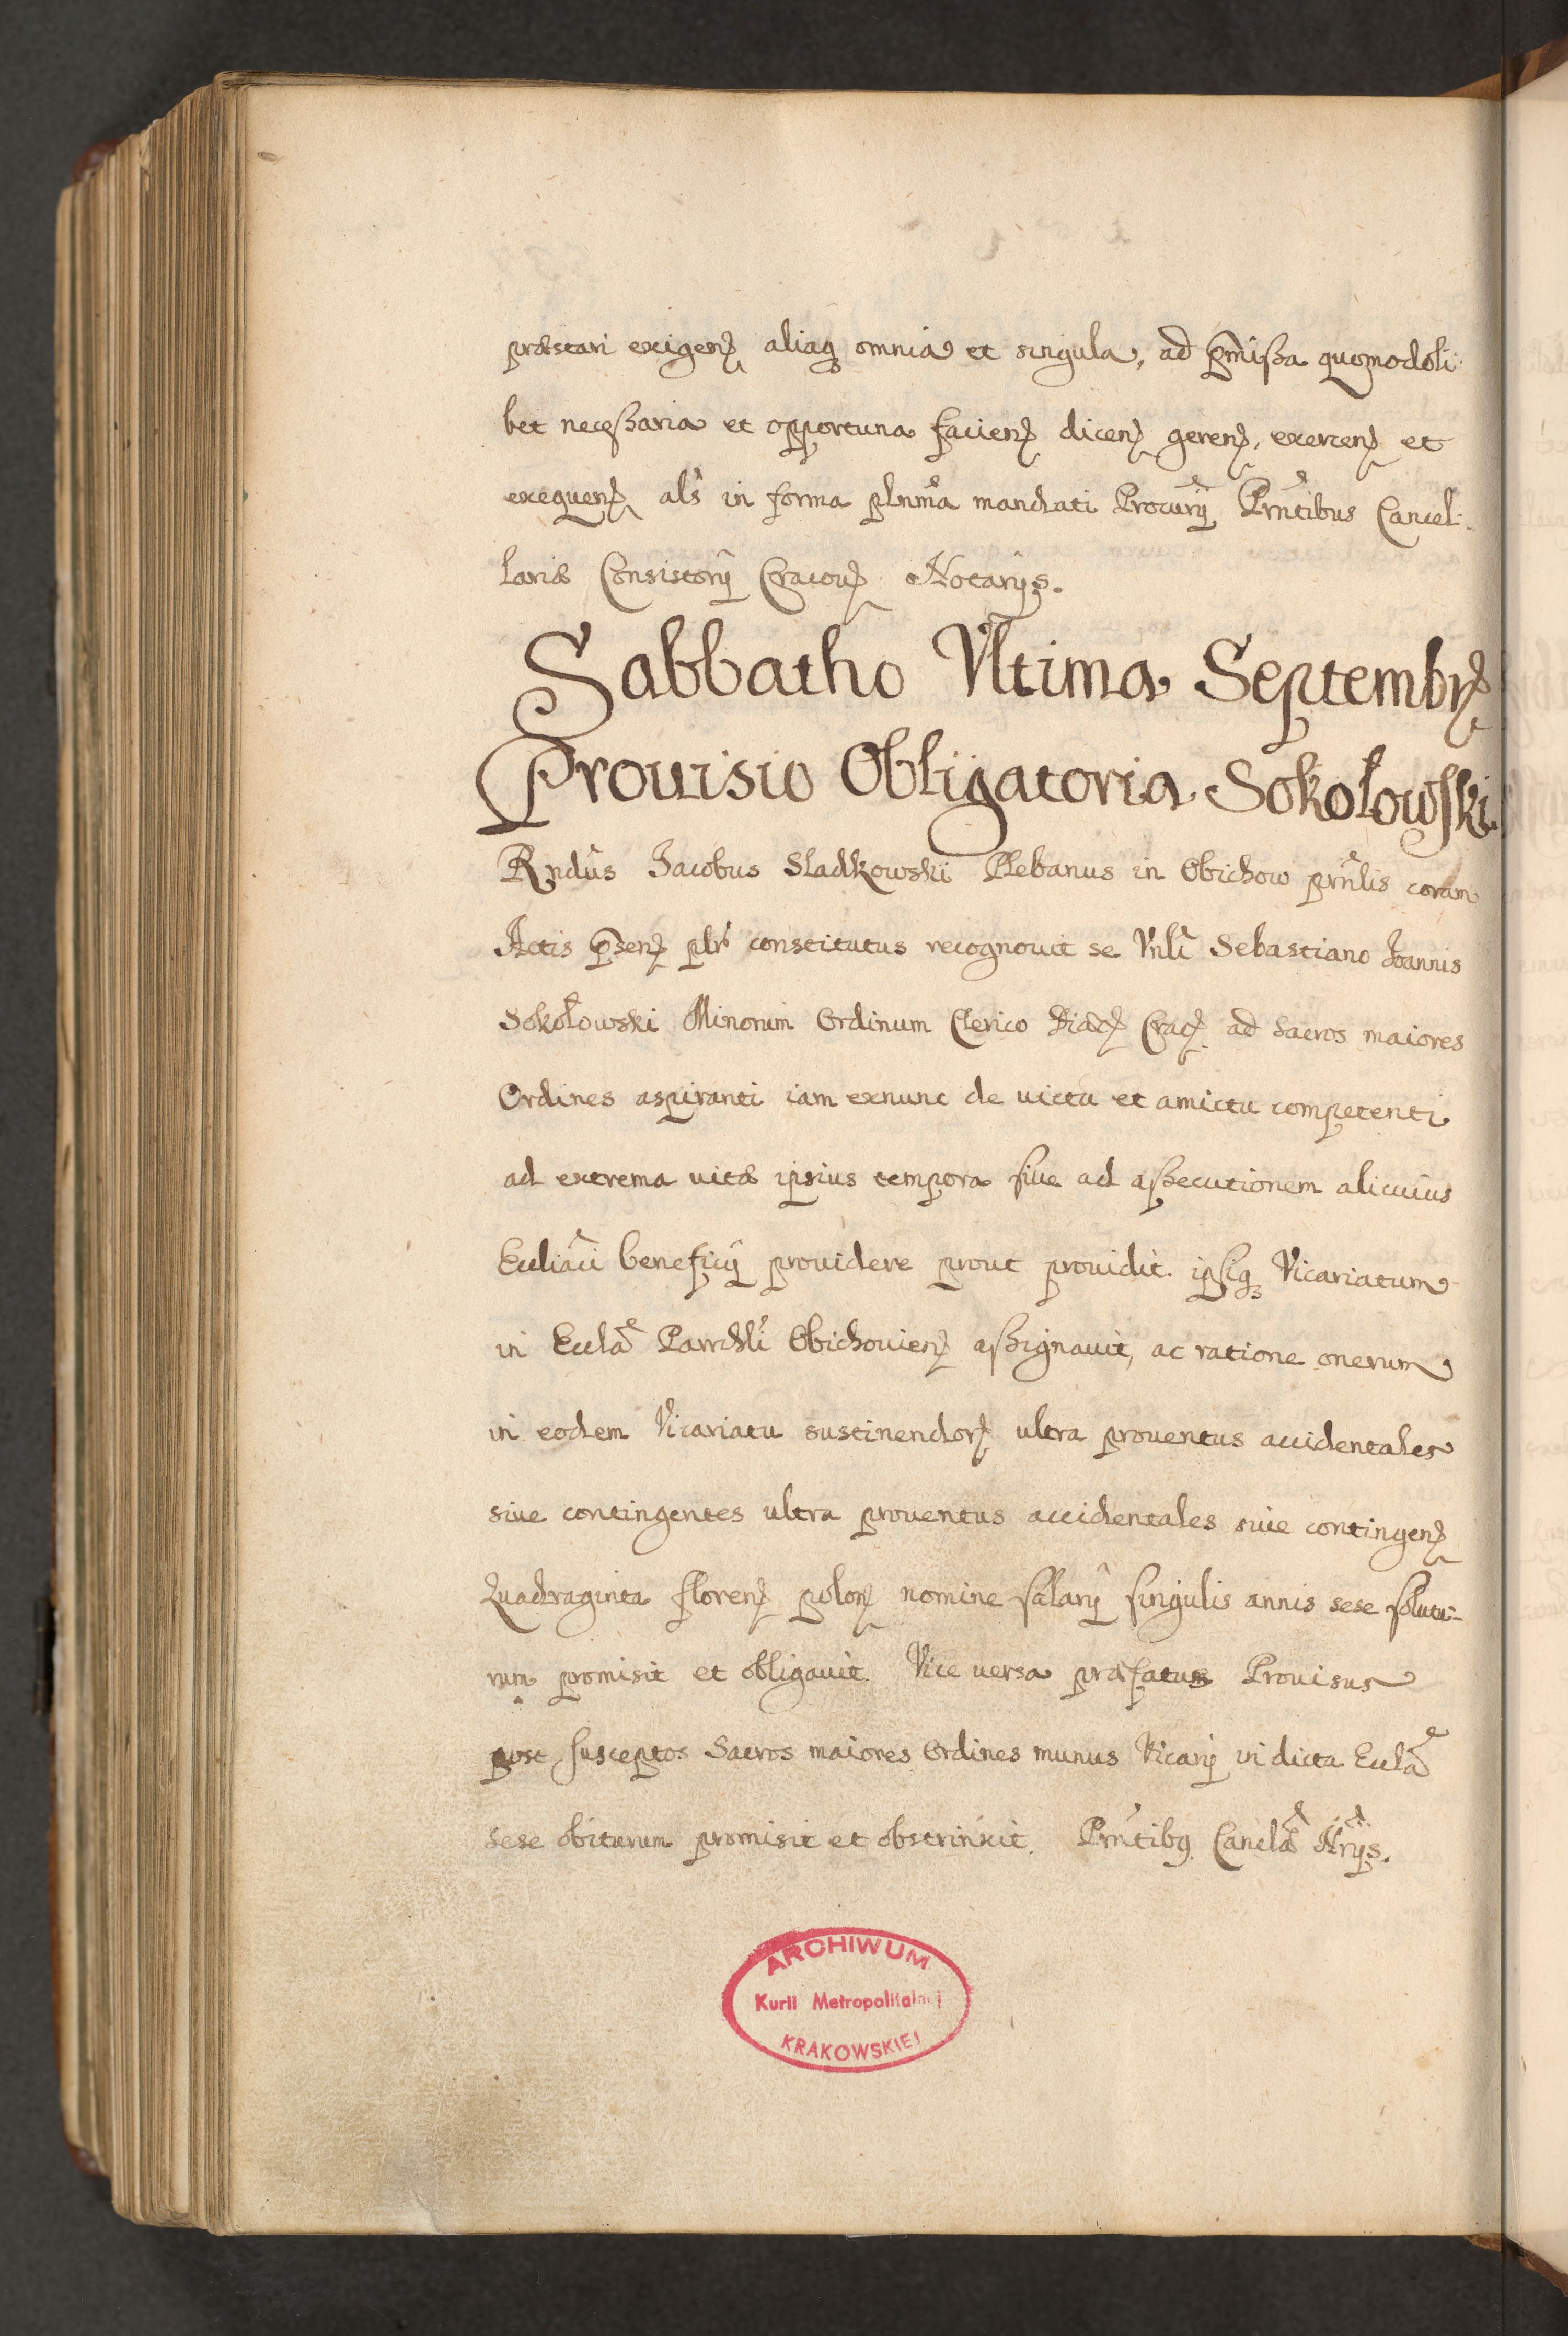 præstari exigen. aliaq. omnia et singula, ad pmissa quomodoli
bet necessaria et opportuna facien. dicen. geren. exercen. et
exequen. als in forma plnma mandati Procurij Prntibus Cancel-
lariæ Consistorij Cracou. Notarijs.
Sabbatho Vltima Septembr.
Prouisio Obligatoria Sokołowski.
Rndus Jacobus Sladkowski Plebanus in Obichow prnlis coram
Actis psen. plr constitutus recognouit se Vnli Sebastiano Joannis
Sokołowski Minorum Ordinum Clerico Diæc. Crac. ad Sacros maiores
Ordines aspiranti iam exnunc de uictu et amictu competenti
ad extrema uitæ ipsius tempora siue ad assecutionem alicuius
Eccliaci beneficij prouidere prout prouidit. ipsiq. Vicariatum
in Eccla Parrchli Obichouien. assignauit, ac ratione onerum
in eodem Vicariatu sustinendor. ultra prouentus accidentales
siue contingentes ultra prouentus accidentales siue contingen.
Quadraginta floren. polon. nomine salarij singulis annis sese solutu-
rum promisit et obligauit. Vice uersa præfatus Prouisus
post susceptos Sacros maiores Ordines munus Vicarij in dicta Eccla
sese obiturum promisit et obstrinxit. Prntibq. Cancla Nrijs.
ARCHIWUM
Kurii Metropolitalnej
KRAKOWSKIEJ